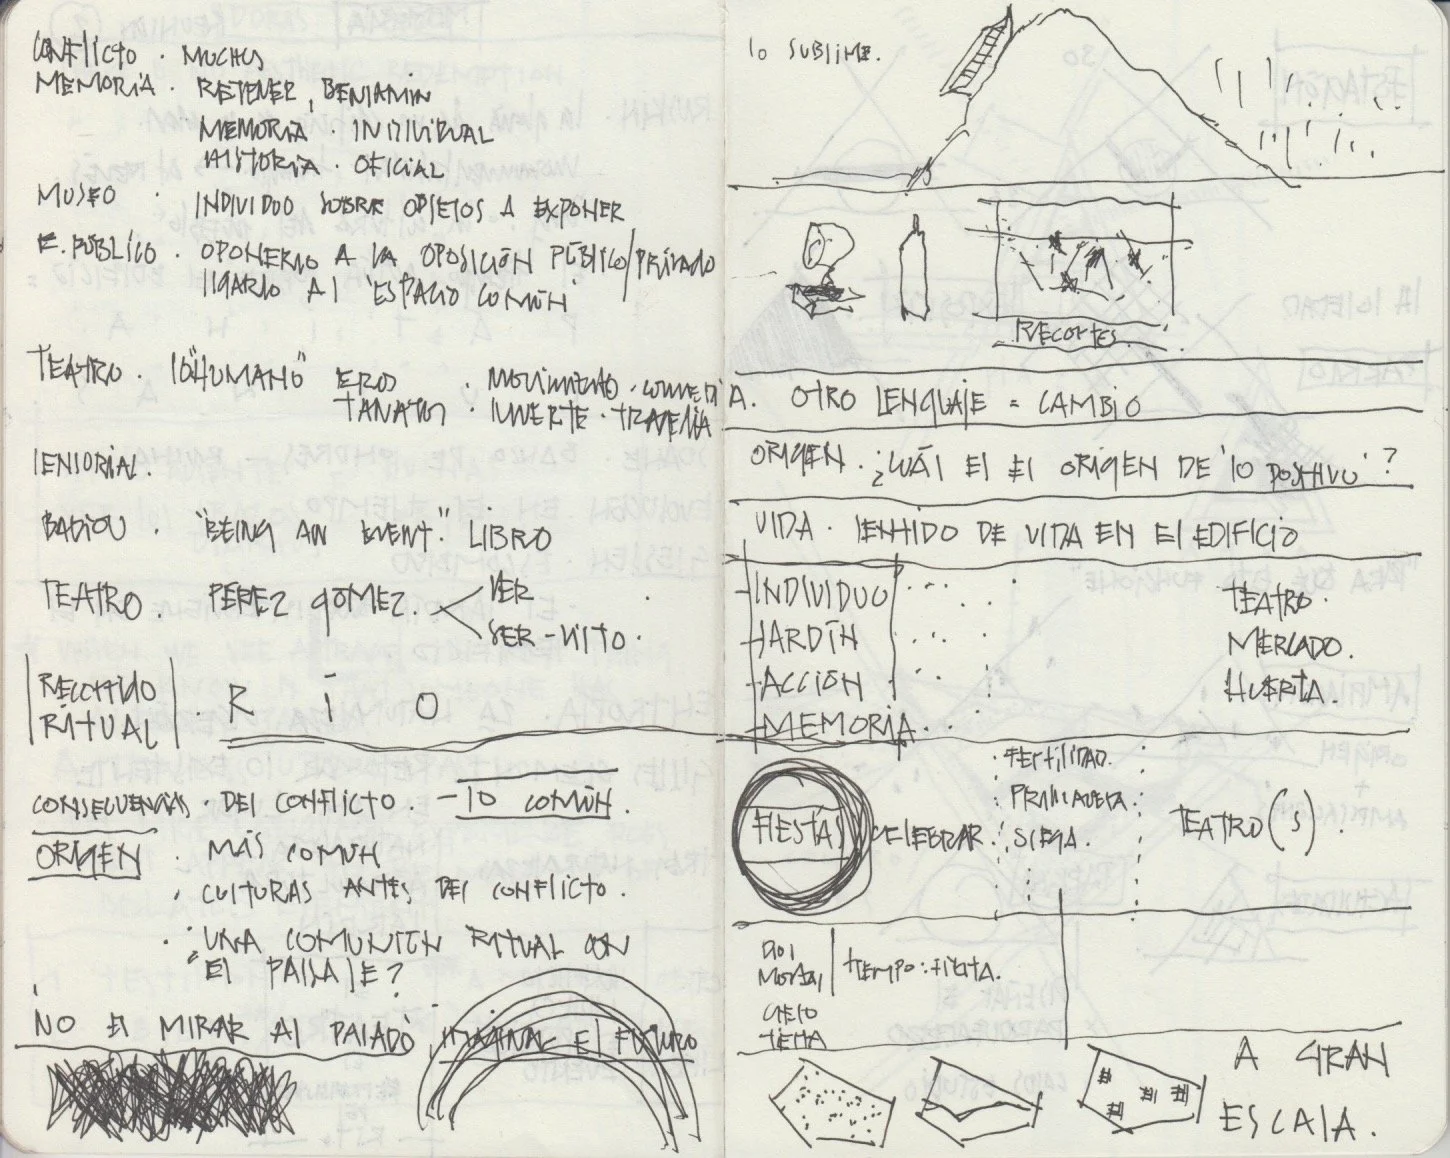 CONFLICTO · MUCHOS
MEMORIA · RETENER, BENJAMIN
MEMORIA · INDIVIDUAL
HISTORIA · OFICIAL
MUSEO · INDIVIDUO SOBRE OBJETOS A EXPONER
E. PÚBLICO · OPONERLO A LA OPOSICIÓN PÚBLICO/PRIVADO
LIGARLO AL "ESPACIO COMÚN"
TEATRO · LO "HUMANO" EROS · MOVIMIENTO · COMMEDIA.
TANATOS · MUERTE · TRAGEDIA
SENSORIAL.
BADIOU · "BEING AN EVENT". LIBRO
TEATRO. PEREZ GOMEZ. VER
SER-VISTO.
RECORRIDO
RITUAL
R Í O
CONSECUENCIAS · DEL CONFLICTO. - LO COMÚN.
ORIGEN · MÁS COMÚN
· CULTURAS ANTES DEL CONFLICTO.
· ¿UNA COMUNIÓN RITUAL CON
EL PAISAJE?
NO ES MIRAR AL PASADO IMAGINAR EL FUTURO
LO SUBLIME.
RECORTES.
OTRO LENGUAJE = CAMBIO
ORIGEN. ¿CUÁL ES EL ORIGEN DE 'LO POSITIVO'?
VIDA. SENTIDO DE VIDA EN EL EDIFICIO
INDIVIDUO TEATRO.
JARDÍN MERCADO.
ACCIÓN HUERTA.
MEMORIA
FIESTAS CELEBRAR: FERTILIDAD.
PRIMAVERA.
SIEGA.
TEATRO(S).
TIEMPO: FIESTA.
CIELO
TIERRA
A GRAN
ESCALA.